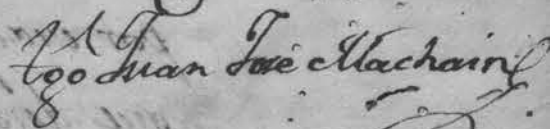 tgo Juan José Machain